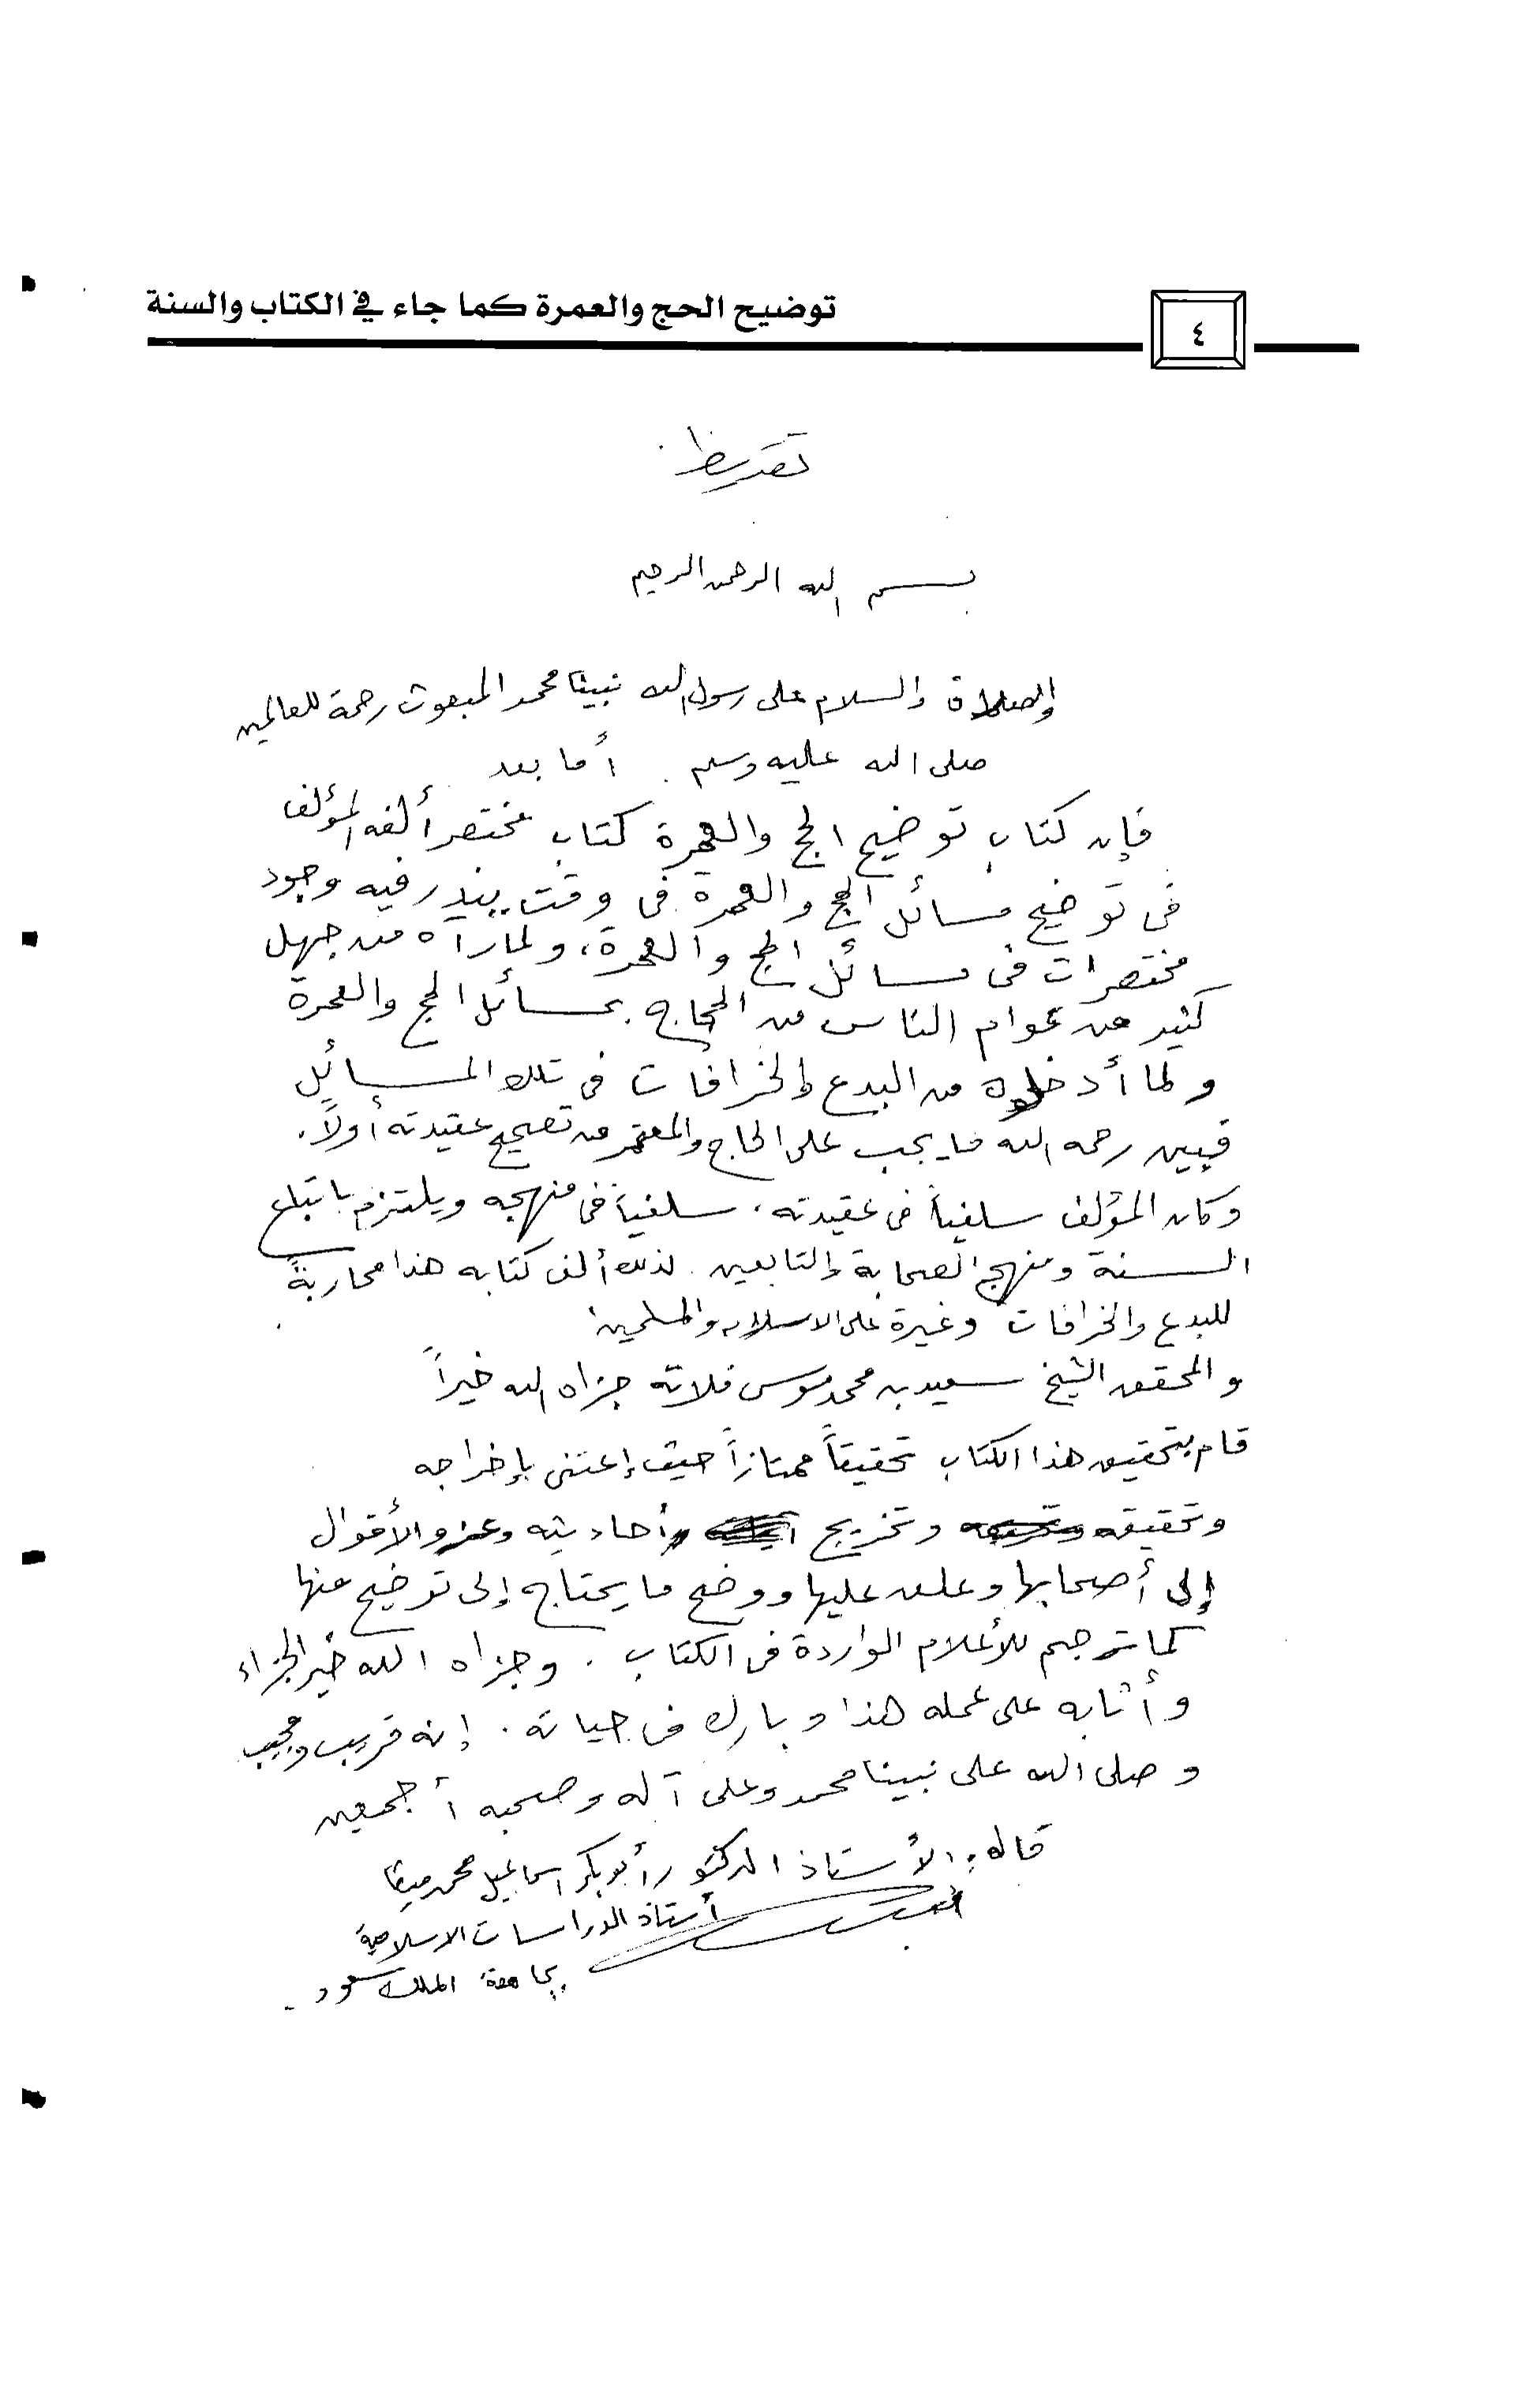 توضيح الحج والعمرة كما جاء في الكتاب والسنة
٤
تقريظ
بسم الله الرحمن الرحيم
والصلاة والسلام على رسول الله نبينا محمد المبعوث رحمة للعالمين
صلى الله عليه وسلم . أما بعد
فإن كتاب توضيح الحج والعمرة كتاب مختصر ألفه المؤلف
فى توضيح مسائل الحج والعمرة فى وقت يندر فيه وجود
مختصرات فى مسائل الحج والعمرة، ولما رآه من جهل
كثير من عوام الناس من الحجاج بمسائل الحج والعمرة
ولما أدخلوه من البدع والخرافات فى تلك المسائل
فبين رحمه الله ما يجب على الحاج والمعتمر من تصحيح عقيدته أولاً.
وكان المؤلف سلفياً فى عقيدته، سلفياً فى منهجه ويلتزم باتباع
السنة ومنهج الصحابة والتابعين. لذلك ألف كتابه هذا محاربةً
للبدع والخرافات وغيرة على الاسلام والمسلمين.
والمحقق الشيخ سعيد بن محمد موسى فلاته جزاه الله خيراً
قام بتحقيق هذا الكتاب تحقيقاً ممتازاً حيث إعتنى بإخراجه
وتحقيقه وتخريج أحاديثه وعزو الأقوال
إلى أصحابها وعلق عليها ووضح ما يحتاج إلى توضيح منها
كما ترجم للأعلام الواردة فى الكتاب . وجزاه الله خير الجزاء
وأثابه على عمله هذا وبارك فى حياته . إنه قريب مجيب
وصلى الله على نبينا محمد وعلى آله وصحبه أجمعين
قاله: الأستاذ الدكتور أبوبكر اسماعيل محمد ميقا
أستاذ الدراسات الاسلامية
بجامعة الملك سعود.